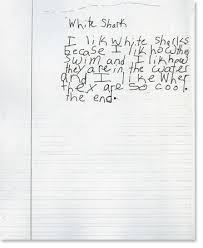 White Shark
I lik white sharks
becase I lik how they
swim and I lik how
they are in the water
and I like wher
thex are so cool.
the end.